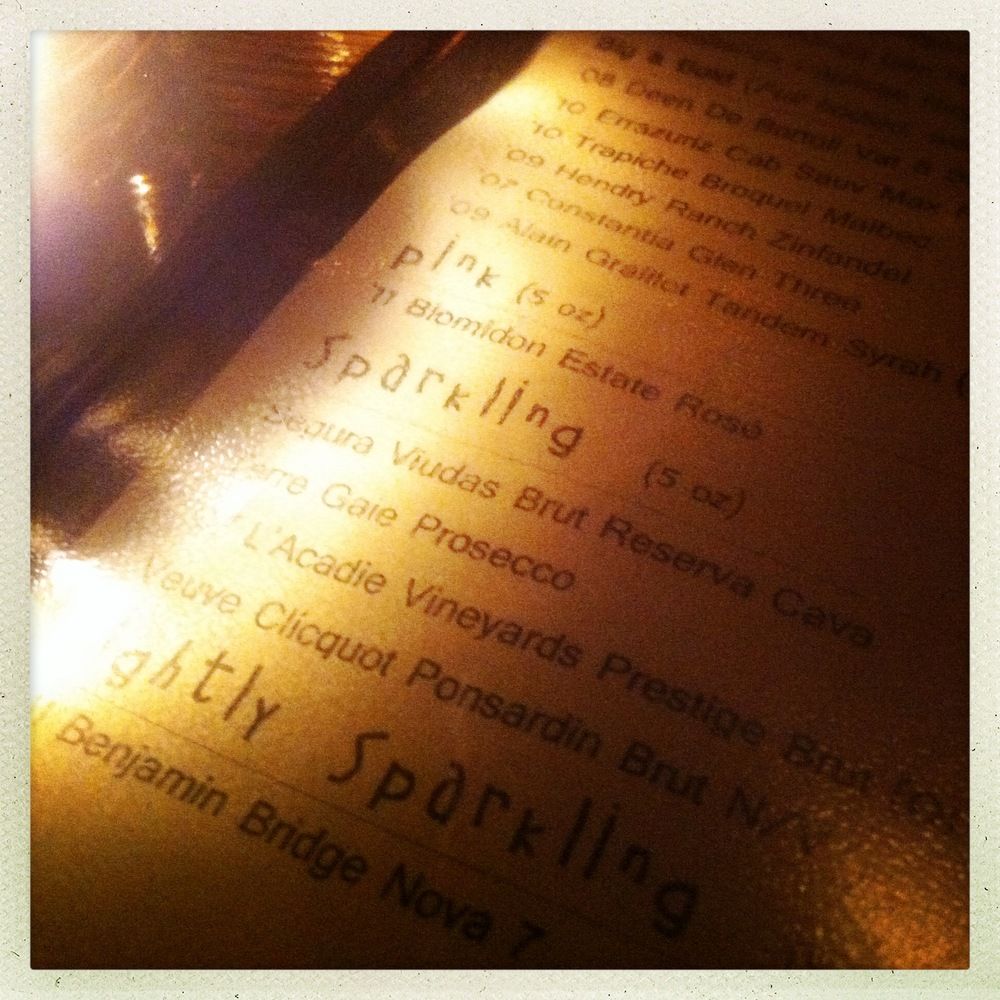 Big & Bold
08 Deen De Bortoli Vat
10 Errazuriz Cab Sauv Max
10 Trapiche Broquel Malbec
09 Hendry Ranch Zinfandel
'07 Constantia Glen Three
'09 Alain Graillot Tandem Syrah (
pink (5 oz)
'11 Blomidon Estate Rosé
Sparkling (5 oz)
Segura Viudas Brut Reserva Cava
Gaie Prosecco
L'Acadie Vineyards Prestige Brut
Veuve Clicquot Ponsardin Brut N/V
ightly Sparkling
Benjamin Bridge Nova 7